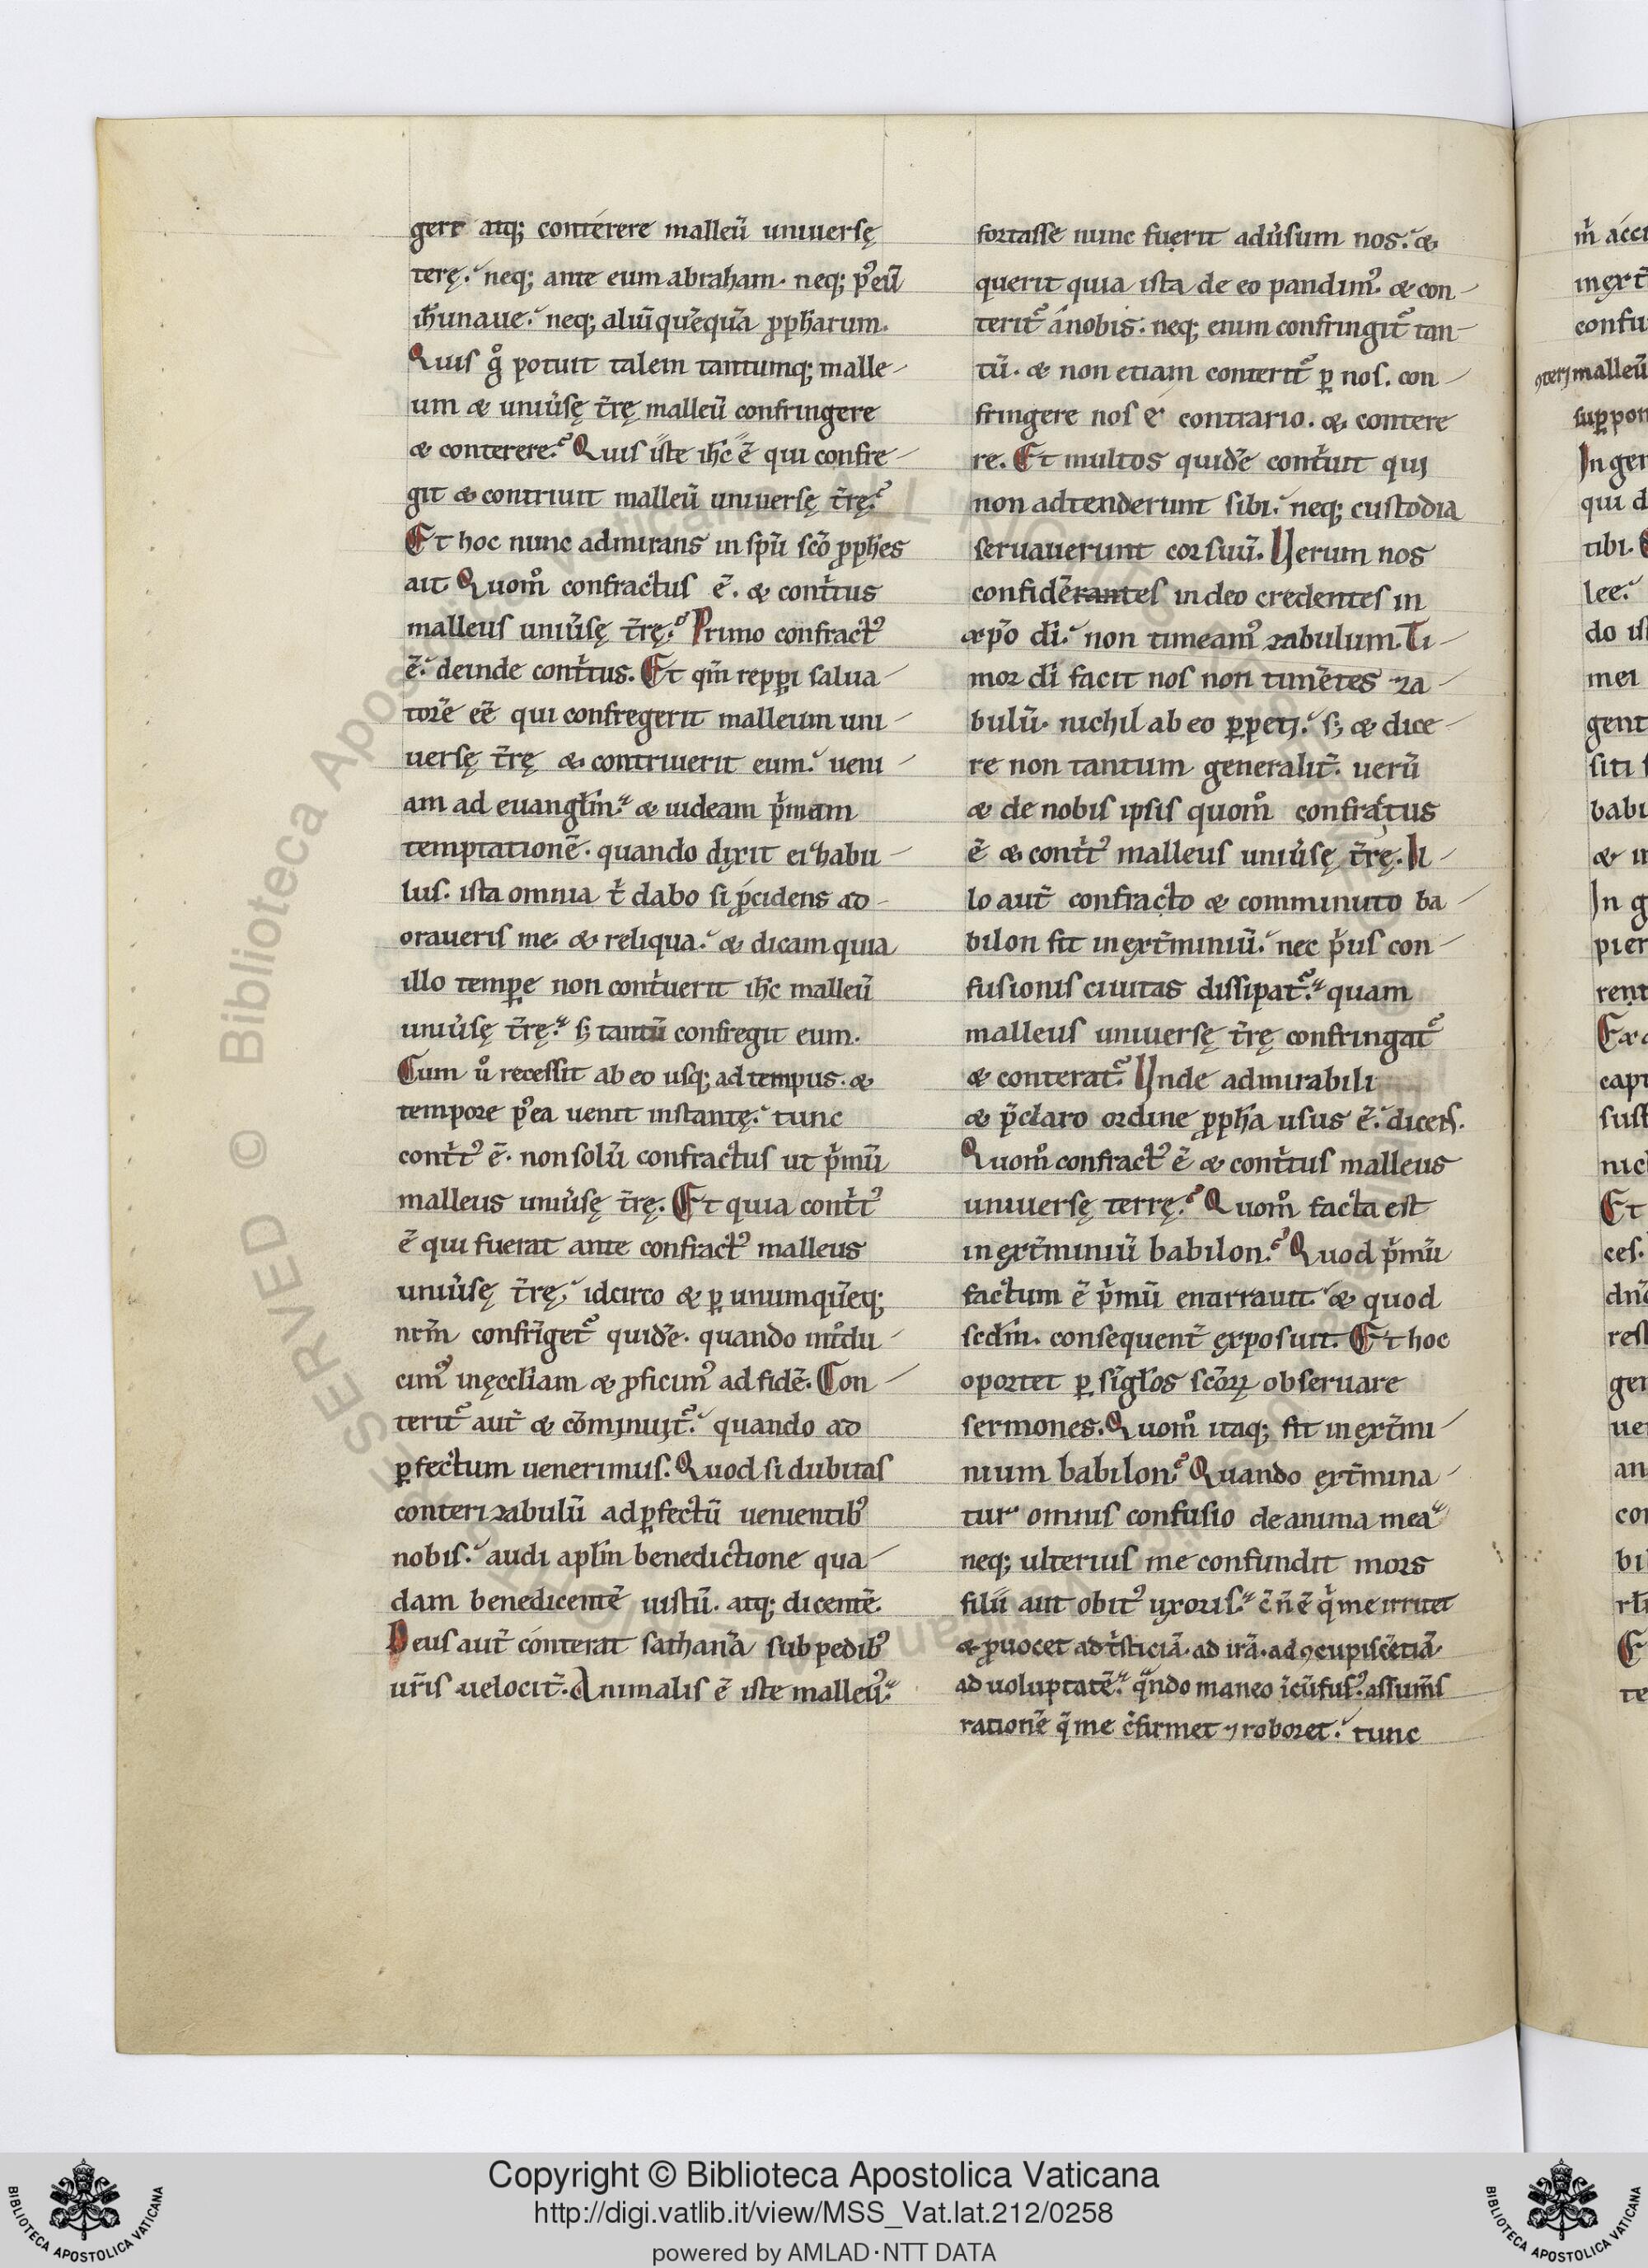 gere atq; conterere malleū uniuersę
terę. neq; ante eum abraham. neq; p᾽eū
ih̄unaue. neq; aliū quēquā ꝓph̄arum.
Quis g̊ potuit talem tantumq; malle-
um & uniũsę t̄rę malleū confringere
& conterere. Quis iste ih̄c ē qui confre-
git & contriuit malleū uniuersę t̄rę.
Et hoc nunc admirans in sp̄u sc̄o ꝓph̄es
ait Quom̊ confractus ē. & cont͛tus
malleus uniũsę t̄rę. Primo confract᾽
ē. deinde cont͛tus. Et qm̄ repꝑi salua-
torē eē qui confregerit malleum uni-
uersę t̄rę & contriuerit eum. ueni-
am ad euangl̄in. & uideam p͛mam
temptationē. quando dixit ei zabu-
lus. ista omnia t͛ dabo si ꝓcidens ad-
oraueris me. & reliqua. & dicam quia
illo tempꝑe non cont͛uerit ih̄c malleū
uniũsę t̄rę. s; tantū confregit eum.
Cum ů recessit ab eo usq; ad tempus. &
tempore p᾽ea uenit instantę. tunc
cont͛t᾽ ē. non solū confractus ut p͛mū
malleus uniũsę t̄rę. Et quia cont͛t᾽
ē qui fuerat ante confract᾽ malleus
uniũsę t̄rę. idcirco & ꝑ unumquēq;
nr̄m confrīget᾽ quidē. quando int͛du-
cim᾽ inęccl̄iam & ꝓficim᾽ ad fidē. Con-
terit᾽ aut̄ & cōminuit᾽. quando ad
ꝑfectum uenerimus. Quod si dubitas
conteri zabulū ad ꝑfectū uenientib᾽
nobis. audi apl̄m benedictione qua-
dam benedicentē iustū. atq; dicentē.
Deus aut̄ conterat sathanā sub pedib᾽
ur̄is uelocit̄. Animalis ē iste malleu᾽.
fortasse nunc fuerit adũsum nos. &
querit quia ista de eo pandim᾽. & con-
terit᾽ a nobis. neq; enim confringit᾽ tan-
tū. & non etiam conterit᾽ ꝑ nos. con-
fringere nos e contrario. & contere
re. Et multos quidē cont͛uit qui
non adtenderunt sibi. neq; custodia
seruauerunt cor suū. Uerum nos
confidērantes in deo credentes in
xp̄o d̄i. non timeam᾽ zabulum. Ti-
mor d̄i facit nos non timētes za-
bulū. nichil ab eo ꝑpeti. s; & dice-
re non tantum generalit̄. uerū
& de nobis ipsis quom̊ confractus
ē & cont͛t᾽ malleus uniũsę t̄rę. Il-
lo aut̄ confracto & comminuto ba-
bilon fit in ext̄miniū. nec p͛us con-
fusionis ciuitas dissipat᾽. quam
malleus uniuersę t̄rę confringat᾽
& conterat᾽. Unde admirabili
& p̄claro ordine ꝓph̄a usus ē. dicens.
Quom̊ confract᾽ ē & cont͛tus malleus
uniuersę terrę. Quom̊ facta est
in ext̄miniū babilon. Quod p͛mū
factum ē p͛mū enarrauit. & quod
scd̄m. consequent̄ exposuit. Et hoc
oportet ꝑ sīgl̄os sc̄oꝝ obseruare
sermones. Quom̊ itaq; fit in ext̄mi-
nium babilon. Quando ext̄mina-
tur omnis confusio de anima mea
neq; ulterius me confundit mors
filii aut obit᾽ uxoris. c̄ n̄ ē q͛ me irritet
& ꝓuocet ad t͛sticiā. ad irā. ad ꝯcupiscētiā.
ad uoluptatē. qͣndo maneo īcūfus᾽. assum̄s
rationē q̄ me c̄firmet ⁊ roboret. tunc
ꝯterj malleū